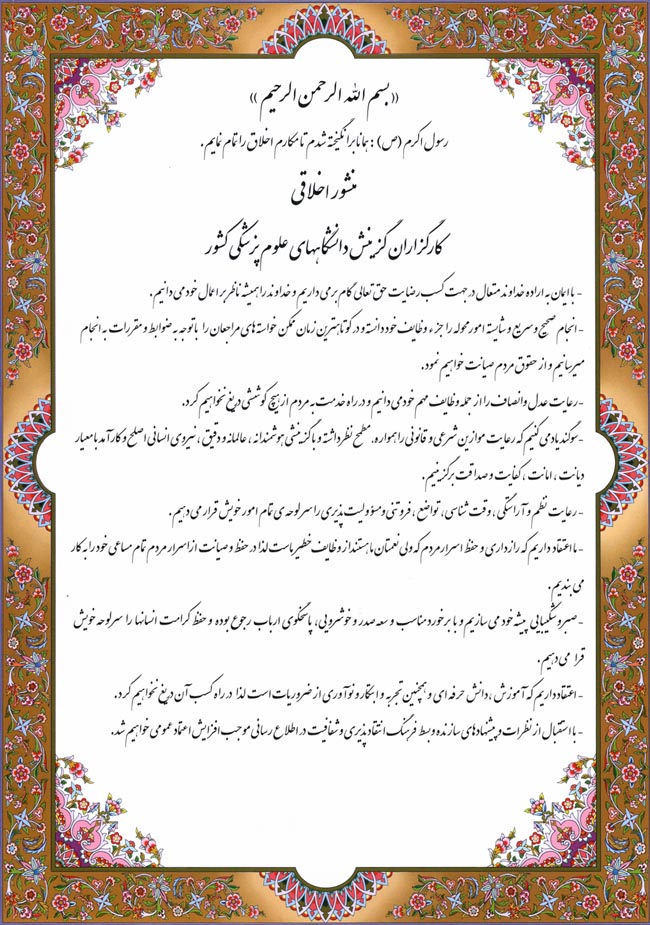 «بسم الله الرحمن الرحیم»
رسول اکرم (ص) : همانا برانگیخته شدم تا مکارم اخلاق را تمام نمایم .
منشور اخلاقی
کارگزاران گزینش دانشگاههای علوم پزشکی کشور
- با ایمان به اراده خداوند متعال در جهت کسب رضایت حق تعالی گام برمی داریم و خداوند را همیشه ناظر بر اعمال خود می دانیم .
- انجام صحیح و سریع و شایسته امور محوله را جزء وظایف خود دانسته و در کوتاهترین زمان ممکن خواسته های مراجعان را با توجه به ضوابط و مقررات به انجام
میرسانیم و از حقوق مردم صیانت خواهیم نمود.
-رعایت عدل و انصاف را از جمله وظایف مهم خود می دانیم و در راه خدمت به مردم از هیچ کوششی دریغ نخواهیم کرد.
-سوگند یاد می کنیم که رعایت موازین شرعی و قانونی را همواره. مطمح نظر داشته و با گزینشی هوشمندانه ، عالمانه و دقیق ، نیروی انسانی اصلح و کارآمد با معیار
دیانت ، امانت ، کفایت و صداقت برگزینیم.
-رعایت نظم و آراستگی ، وقت شناسی، تواضع ، فروتنی و مسؤولیت پذیری را سرلوحه ی تمام امور خویش قرار می دهیم.
-ما اعتقاد داریم که رازداری و حفظ اسرار مردم که ولی نعمتان ما هستند از وظایف خطیر ماست لذا در حفظ و صیانت از اسرار مردم تمام مساعی خود را به کار
می بندیم.
-صبر و شکیبایی پیشه خود می سازیم و با برخورد مناسب و سعه صدر و خوشرویی، پاسخگوی ارباب رجوع بوده و حفظ کرامت انسانها را سرلوحه خویش
قرا می دهیم.
- اعتقاد داریم که آموزش ، دانش حرفه ای و همچنین تجربه و ابتکار و نوآوری از ضروریات است لذا در راه کسب آن دریغ نخواهیم کرد.
-با استقبال از نظرات و پیشنهادهای سازنده و بسط فرهنگ انتقاد پذیری و شفافیت در اطلاع رسانی موجب افزایش اعتماد عمومی خواهیم شد.